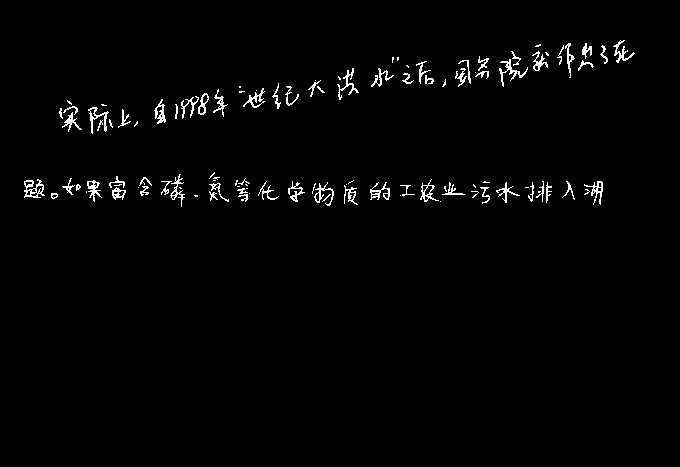 实际上,自1998年“世纪大洪水”之后,国务院就作出了死
题。如果富含磷、氮等化学物质的工农业污水排入湖